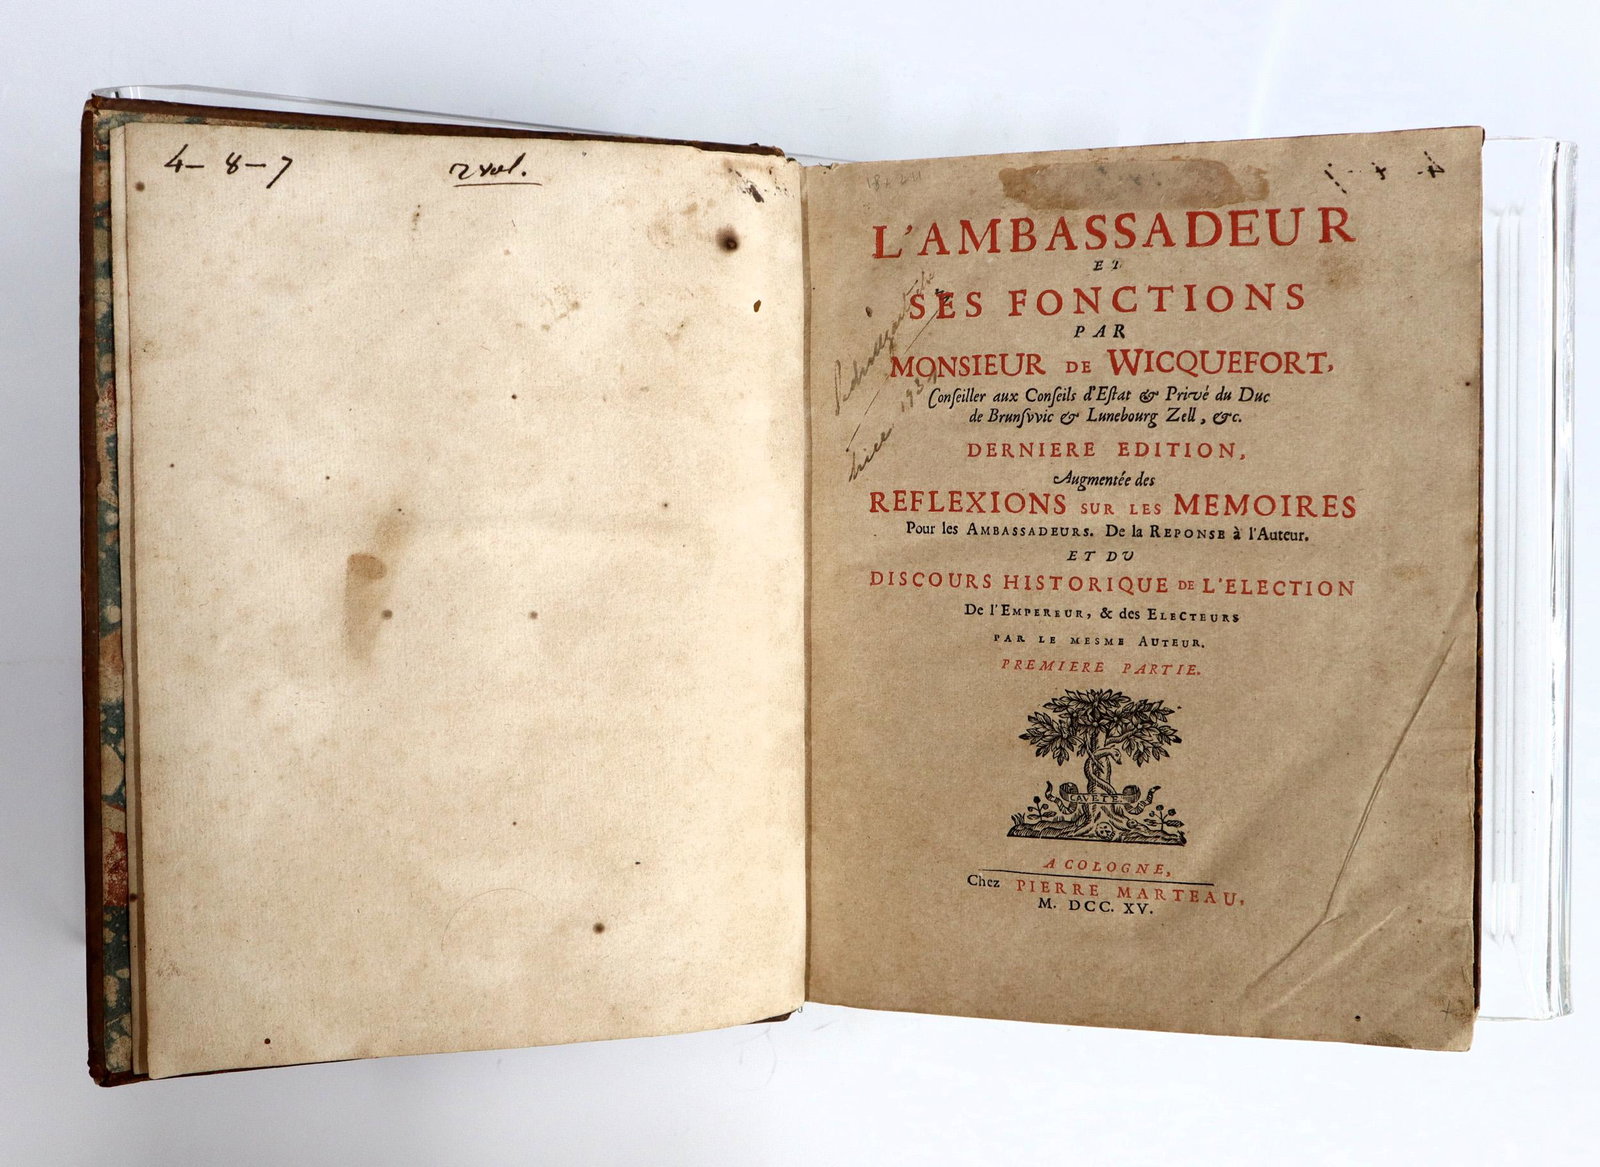 4– 8– 7
2 vol.
L'AMBASSADEUR
ET
SES FONCTIONS
PAR
MONSIEUR DE WICQUEFORT,
Conſeiller aux Conſeils d'Eſtat & Privé du Duc
de Brunſvvic & Lunebourg Zell, &c.
DERNIERE EDITION,
Augmentée des
REFLEXIONS SUR LES MEMOIRES
Pour les AMBASSADEURS. De la REPONSE à l'Auteur.
ET DU
DISCOURS HISTORIQUE DE L'ELECTION
De l'EMPEREUR, & des ELECTEURS
PAR LE MESME AUTEUR.
PREMIERE PARTIE.
CAVETE
A COLOGNE,
Chez PIERRE MARTEAU,
M. DCC. XV.